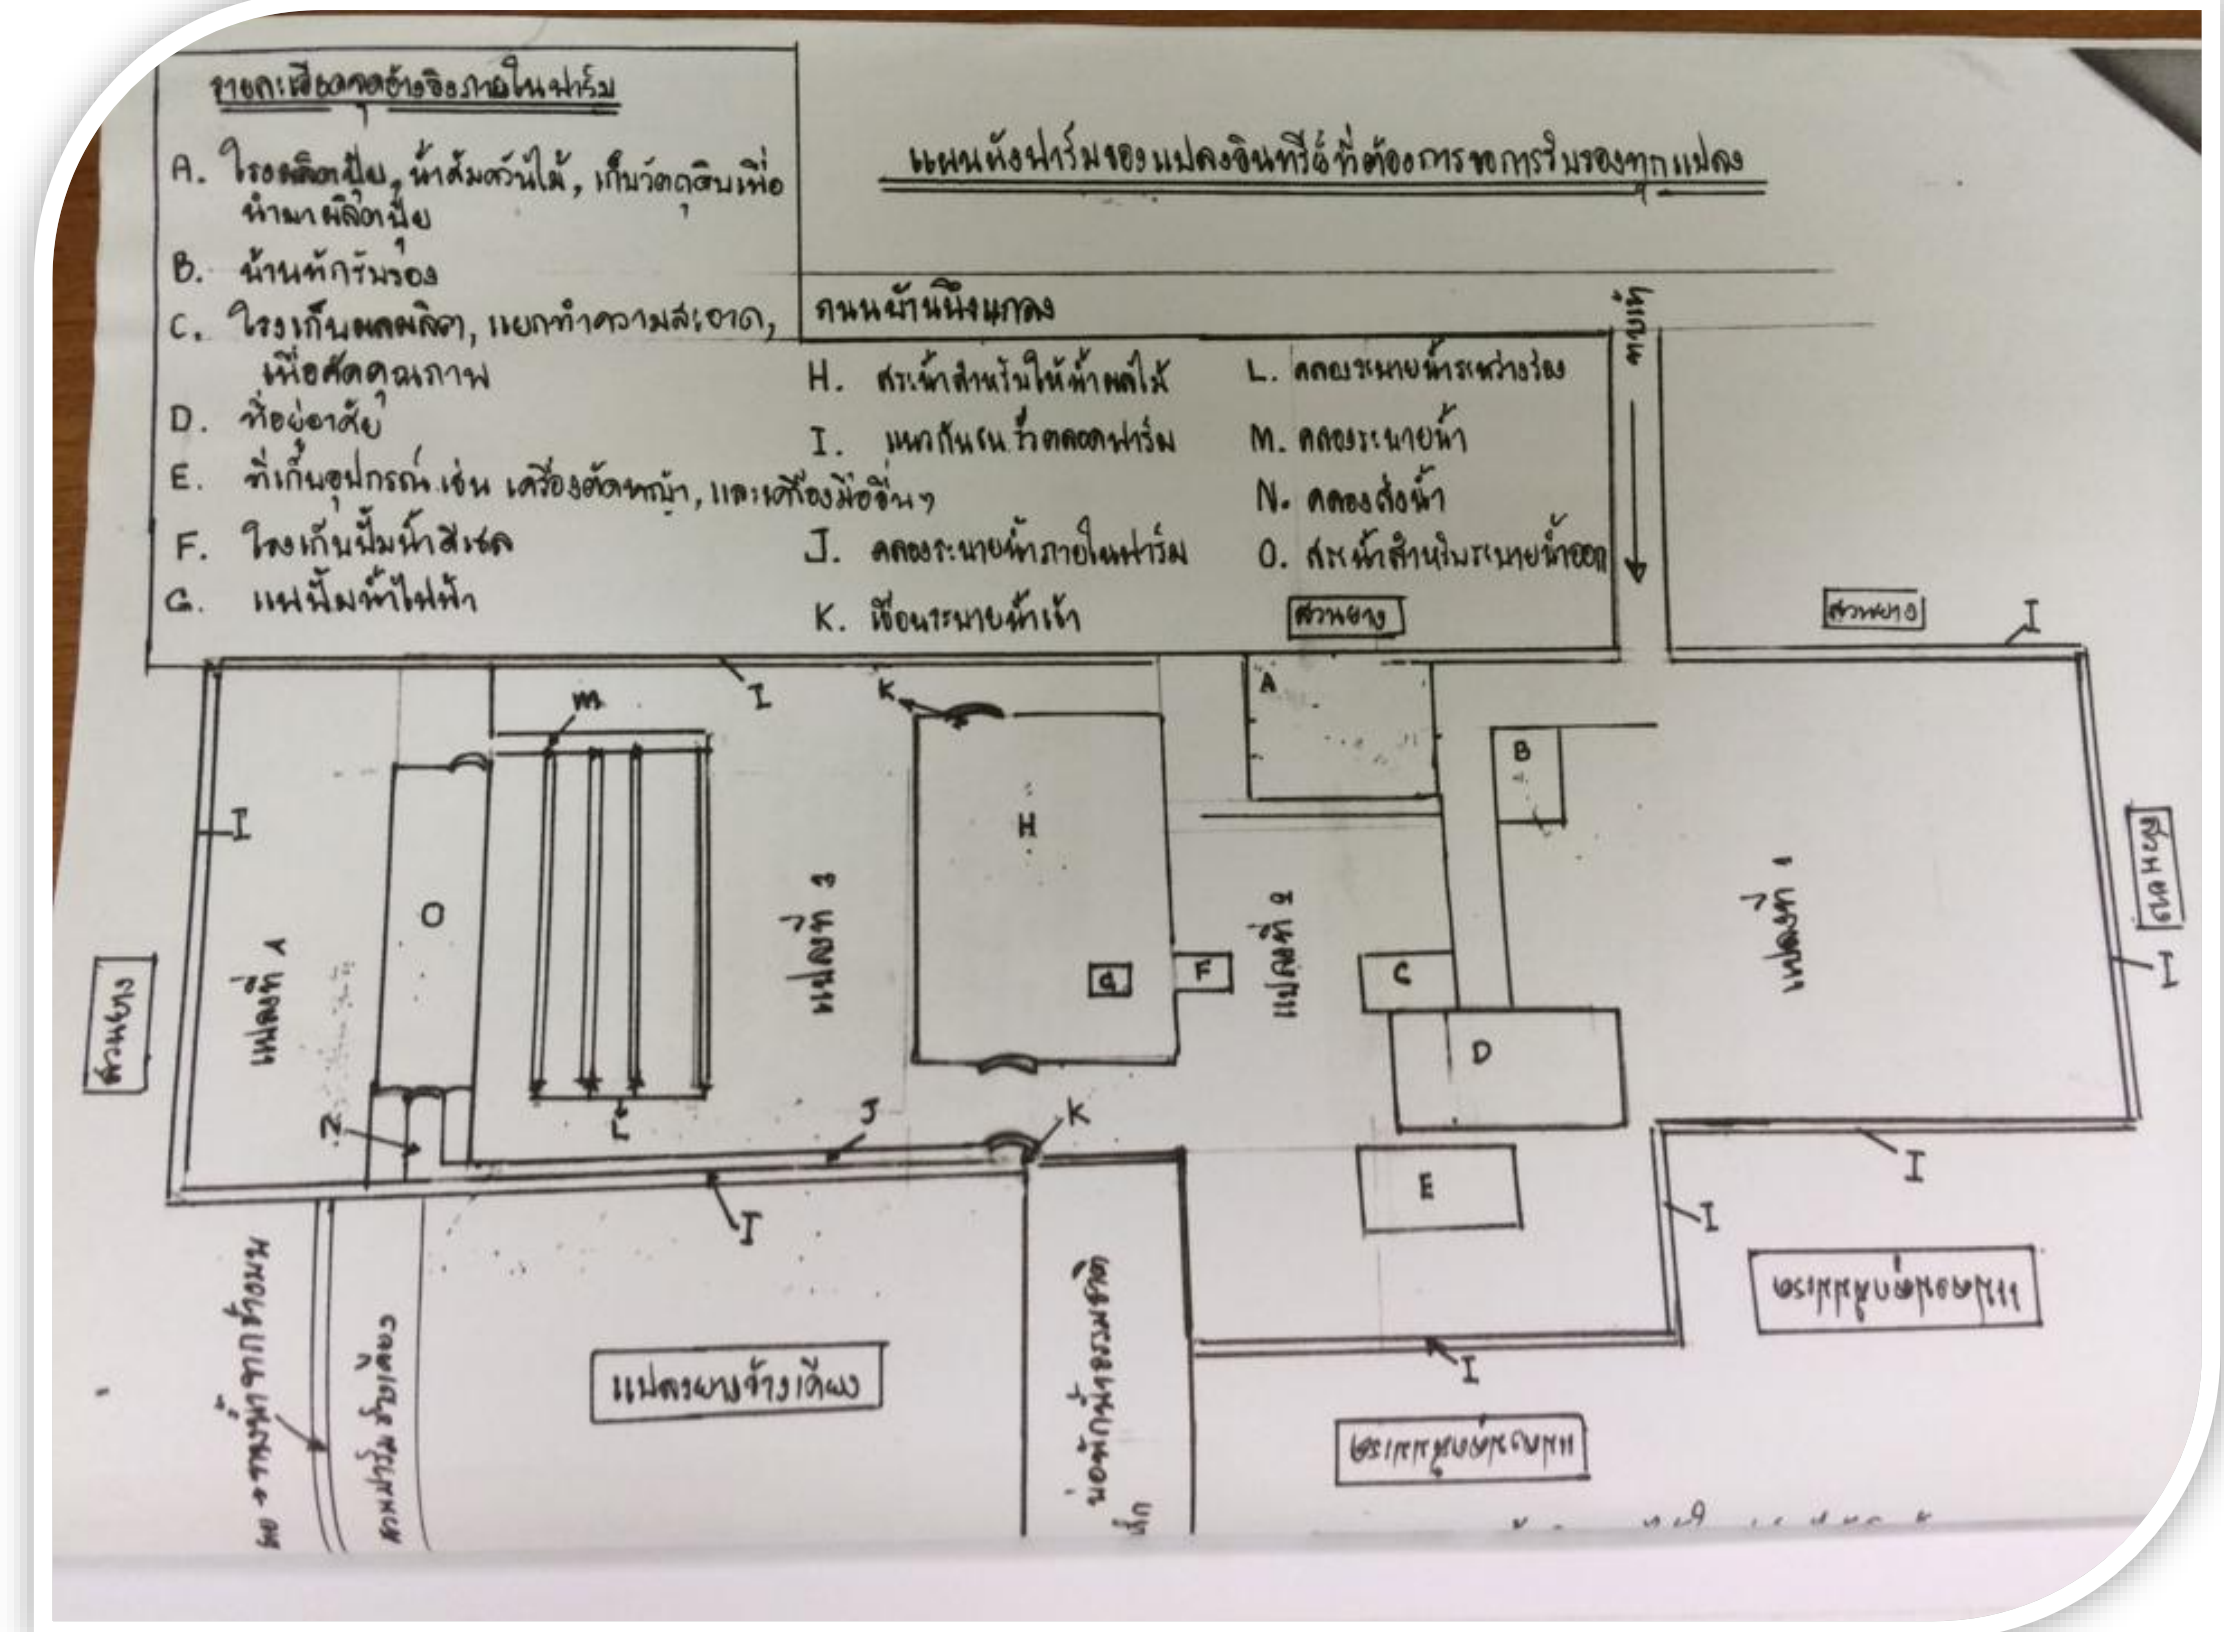 รายละเอียดจุดอ้างอิงภายในฟาร์ม
A. โรงผลิตปุ๋ย, น้ำส้มควันไม้, เก็บวัตถุดิบเพื่อ
นำมาผลิตปุ๋ย
B. บ้านพักรับรอง
C. โรงเก็บผลผลิต, แยกทำความสะอาด,
เพื่อคัดคุณภาพ
D. ที่อยู่อาศัย
E. ที่เก็บอุปกรณ์ เช่น เครื่องตัดหญ้า, และเครื่องมืออื่นๆ
F. โรงเก็บปั๊มน้ำดีเซล
G. แพปั๊มน้ำไฟฟ้า
แผนผังฟาร์มของแปลงอินทรีย์ที่ต้องการขอการรับรองทุกแปลง
ถนนบ้านบึงแกลง
ทางเข้า
H. สระน้ำสำหรับให้น้ำผลไม้
I. แนวกันชน รั้วตลอดฟาร์ม
J. คลองระบายน้ำภายในฟาร์ม
K. เขื่อนระบายน้ำเข้า
L. คลองระบายน้ำระหว่างร่อง
M. คลองระบายน้ำ
N. คลองส่งน้ำ
O. สระน้ำสำหรับระบายน้ำออก
สวนยาง
สวนยาง
I
I
K
M
A
B
H
I
O
แปลงที่ 3
แปลงที่ 2
แปลงที่ 1
I
สวนยาง
แปลงที่
G
F
C
D
N
L
J
K
E
I
I
I
I
ทางน้ำจากข้างบน
สวนฟาร์มข้างเคียง
แปลงยางข้างเคียง
บ่อพักน้ำธรรมชาติ